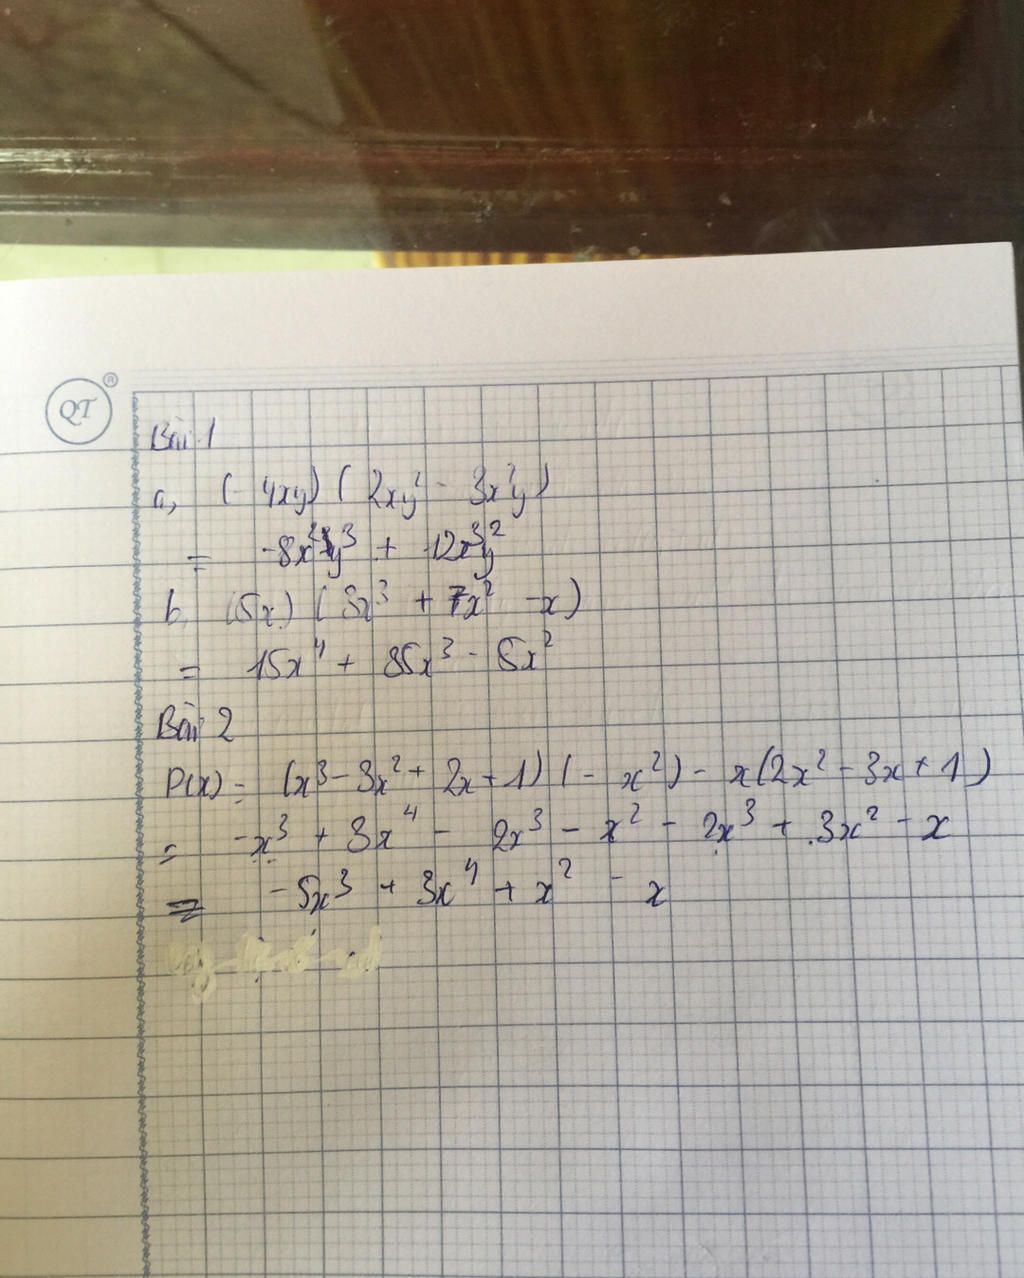 QT ®
Bài 1
a, (-4xy) (2xy² - 3x²y)
= -8x²y³ + 12x³y²
b, (5x) (3x³ + 7x² - x)
= 15x⁴ + 35x³ - 5x²
Bài 2
P(x) = (x³ - 3x² + 2x + 1) (-x²) - x(2x² - 3x + 1)
= -x³ + 3x⁴ - 2x³ - x² - 2x³ + 3x² - x
= -5x³ + 3x⁴ + x² - x